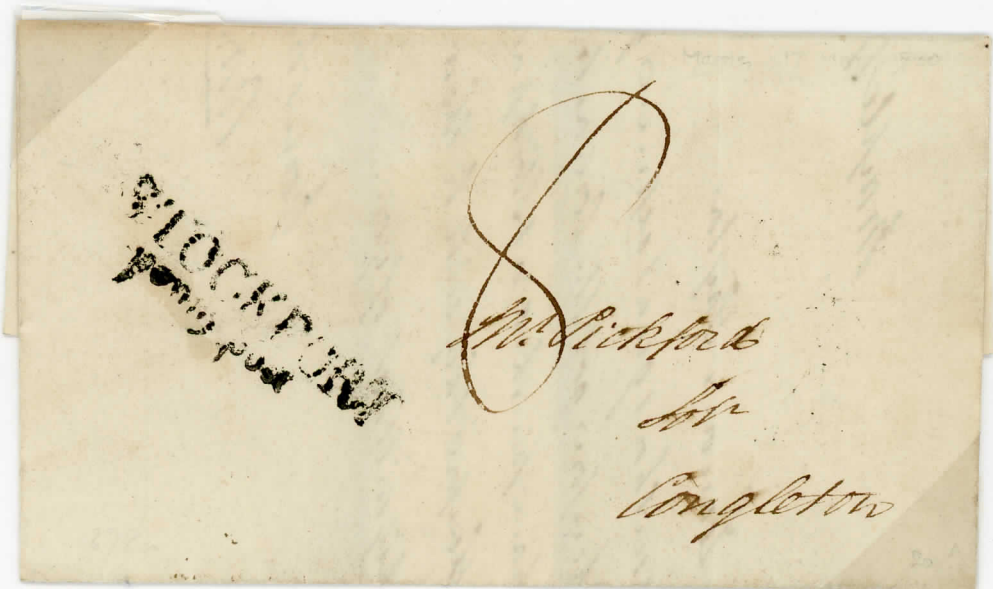 STOCKPORT
penny post
8
Mr. Pickford
Solr
Congleton